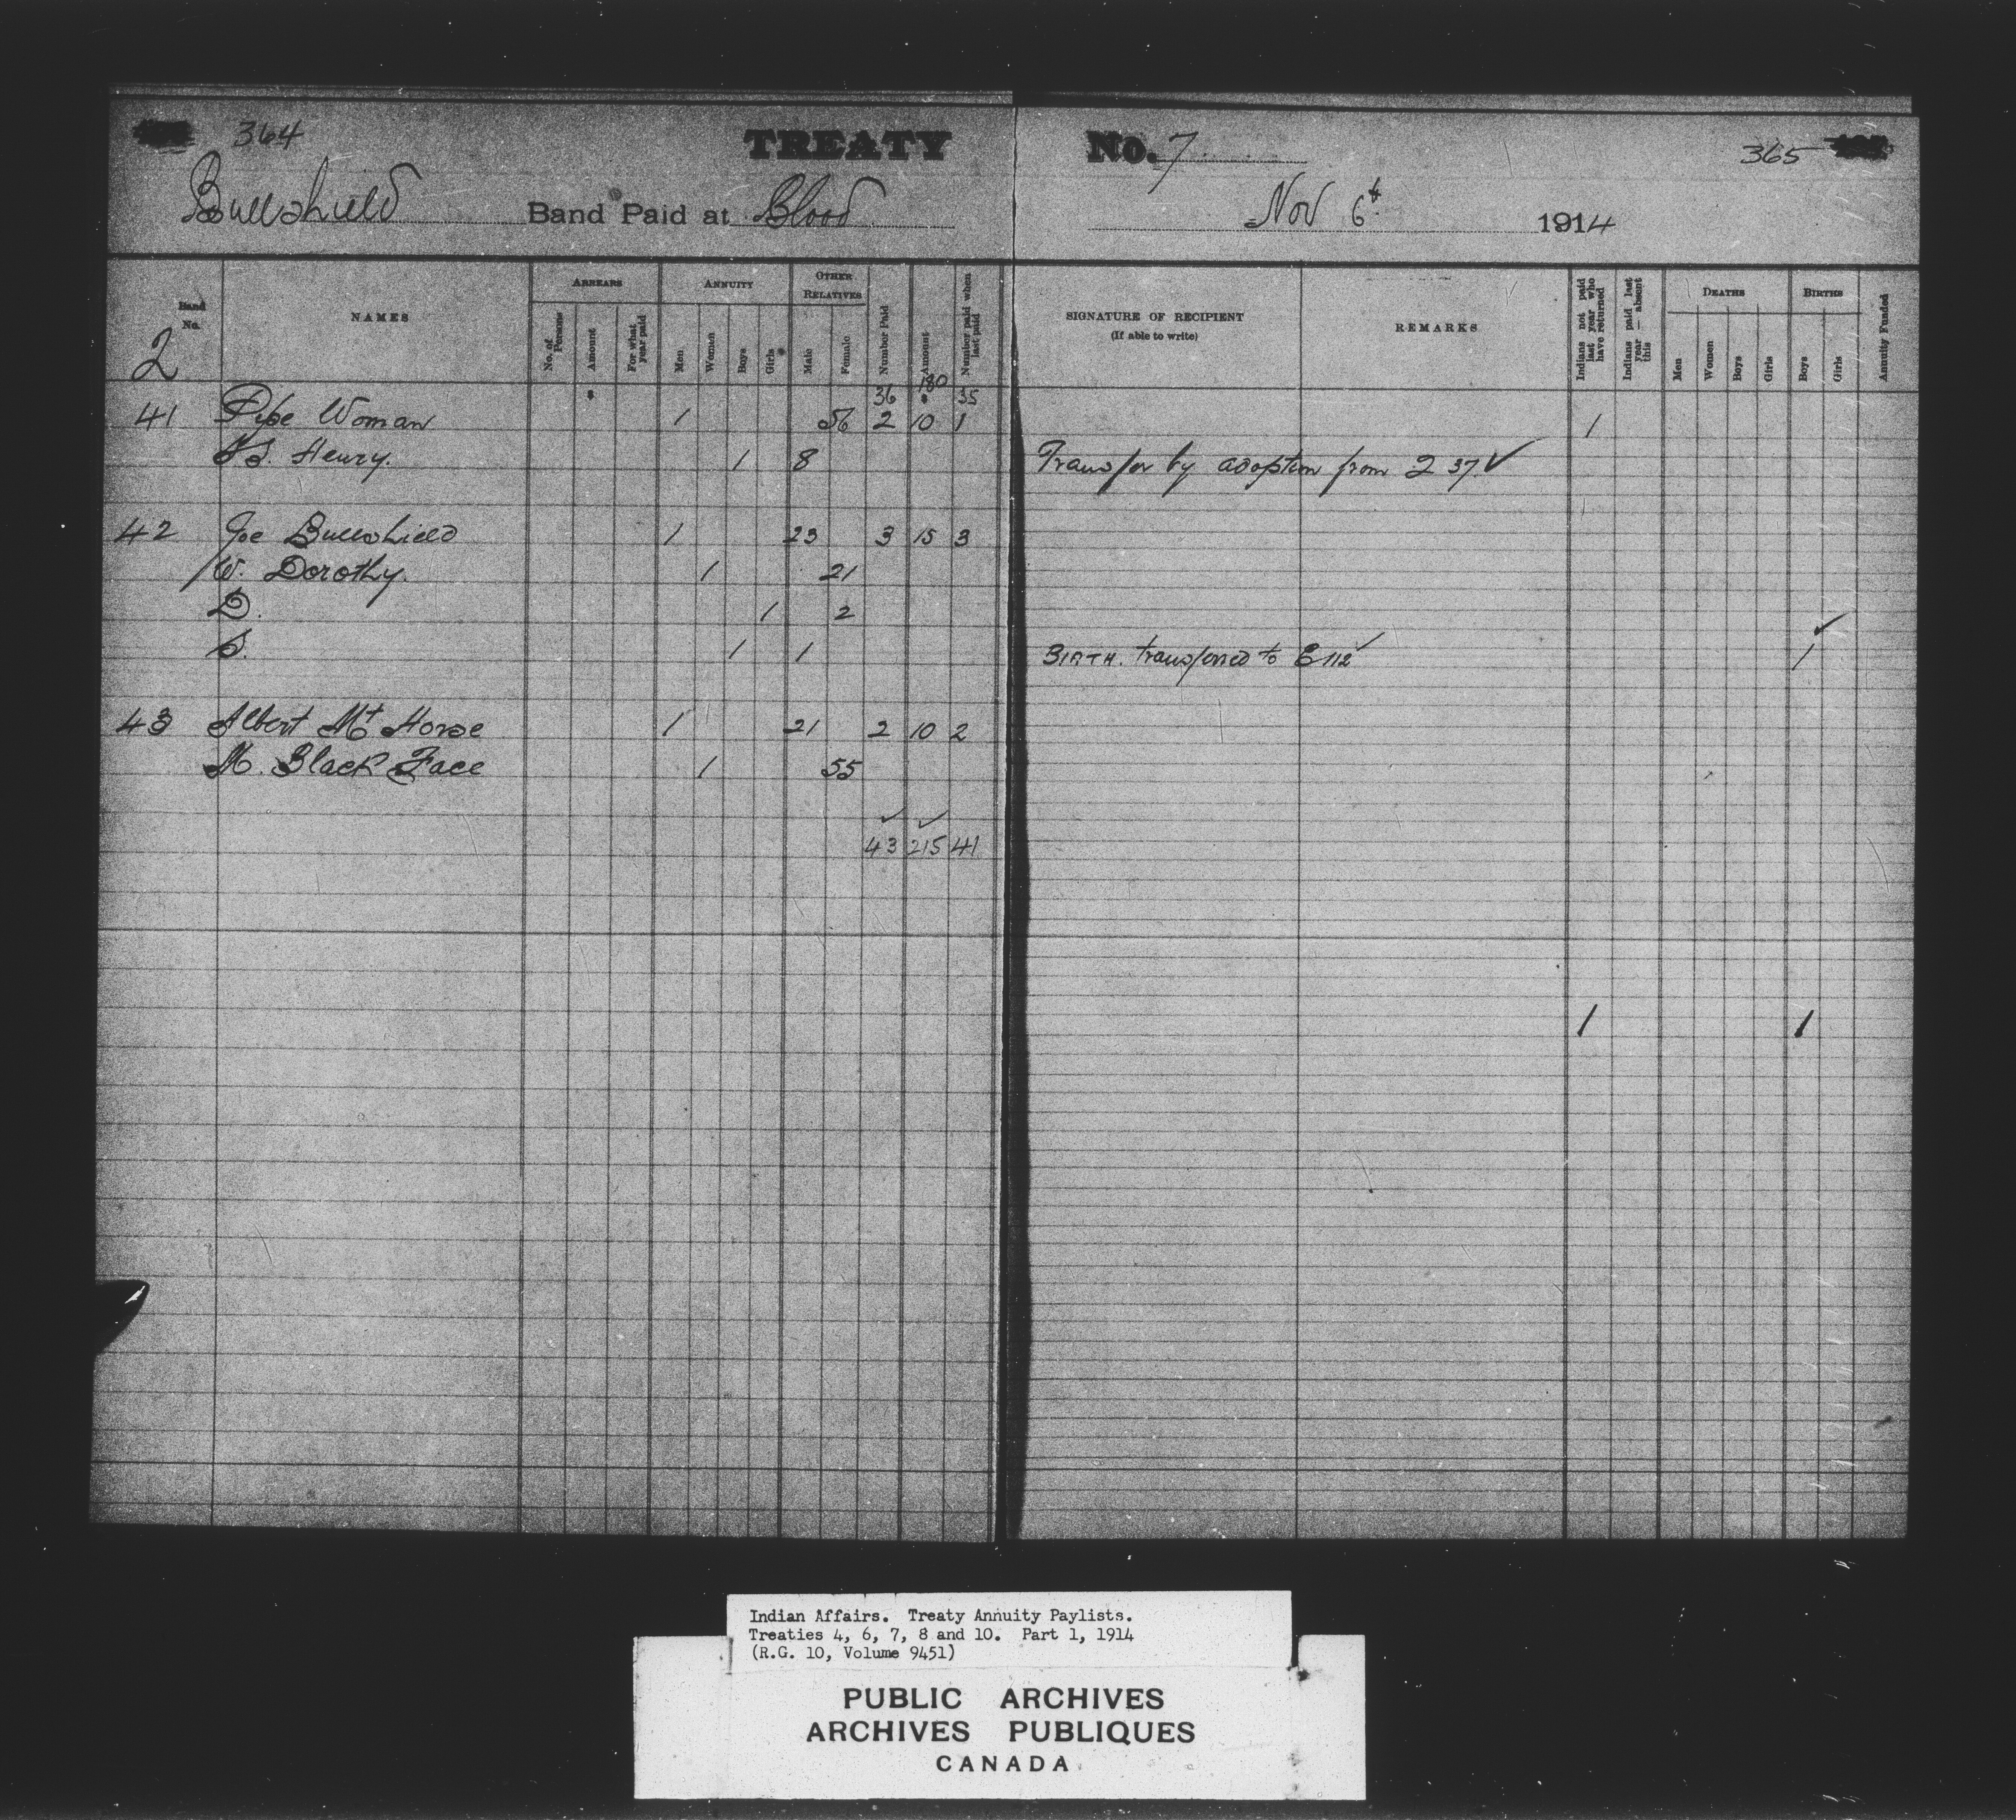 364
TREATY No. 7
365
Bullshield Band Paid at Blood
Nov 6th 1914
Band No.
NAMES
ARREARS
No. of Persons
Amount
For what year paid
ANNUITY
Men
Women
Boys
Girls
OTHER RELATIVES
Male
Female
Number Paid
Amount
Number paid when last paid
SIGNATURE OF RECIPIENT
(If able to write)
REMARKS
Indians not paid last year who have returned
Indians paid last year — absent this
DEATHS
Men
Women
Boys
Girls
BIRTHS
Boys
Girls
Annuity Funded
2
36 180 35
41 Pipe Woman 1 56 2 10 1 1
Henry. 1 8 Transfer by adoption from 2 37 ✓
42 Joe Bullshield 1 23 3 15 3
W. Dorothy. 1 21
D. 1 2
S. 1 1 BIRTH. transferred to E 112 ✓ 1 ✓
43 Albert Mt Horse 1 21 2 10 2
M. Black Face 1 55
✓ ✓
43 215 41
1 1
Indian Affairs. Treaty Annuity Paylists.
Treaties 4, 6, 7, 8 and 10. Part 1, 1914
(R.G. 10, Volume 9451)
PUBLIC ARCHIVES
ARCHIVES PUBLIQUES
CANADA